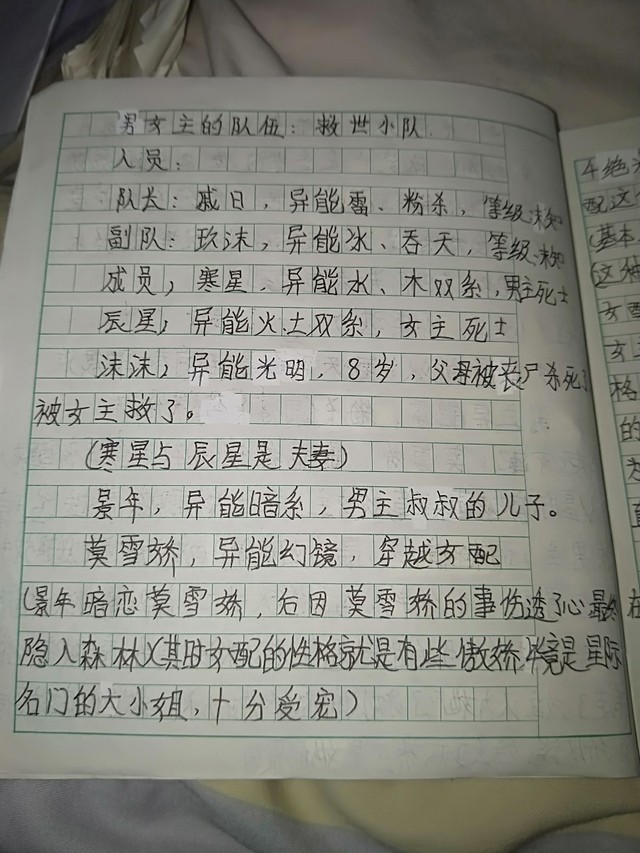 男女主的队伍：救世小队
人员：
队长：戚日，异能雷、粉杀，等级未知
副队：玖沫，异能冰、吞天，等级未知
成员，寒星，异能水、木双系，男主死士
辰星，异能火土双系，女主死士
沫沫，异能光明，8岁，父母被丧尸杀死了
被女主救了。
（寒星与辰星是夫妻）
景年，异能暗系，男主叔叔的儿子。
莫雪娇，异能幻镜，穿越女配
（景年暗恋莫雪娇，后因莫雪娇的事伤透了心最终
隐入森林）（其时女配的性格就是有些傲娇，竟是星际
名门的大小姐，十分受宠）
4绝
配这个
（基本
这种
女配
女
格
的
在